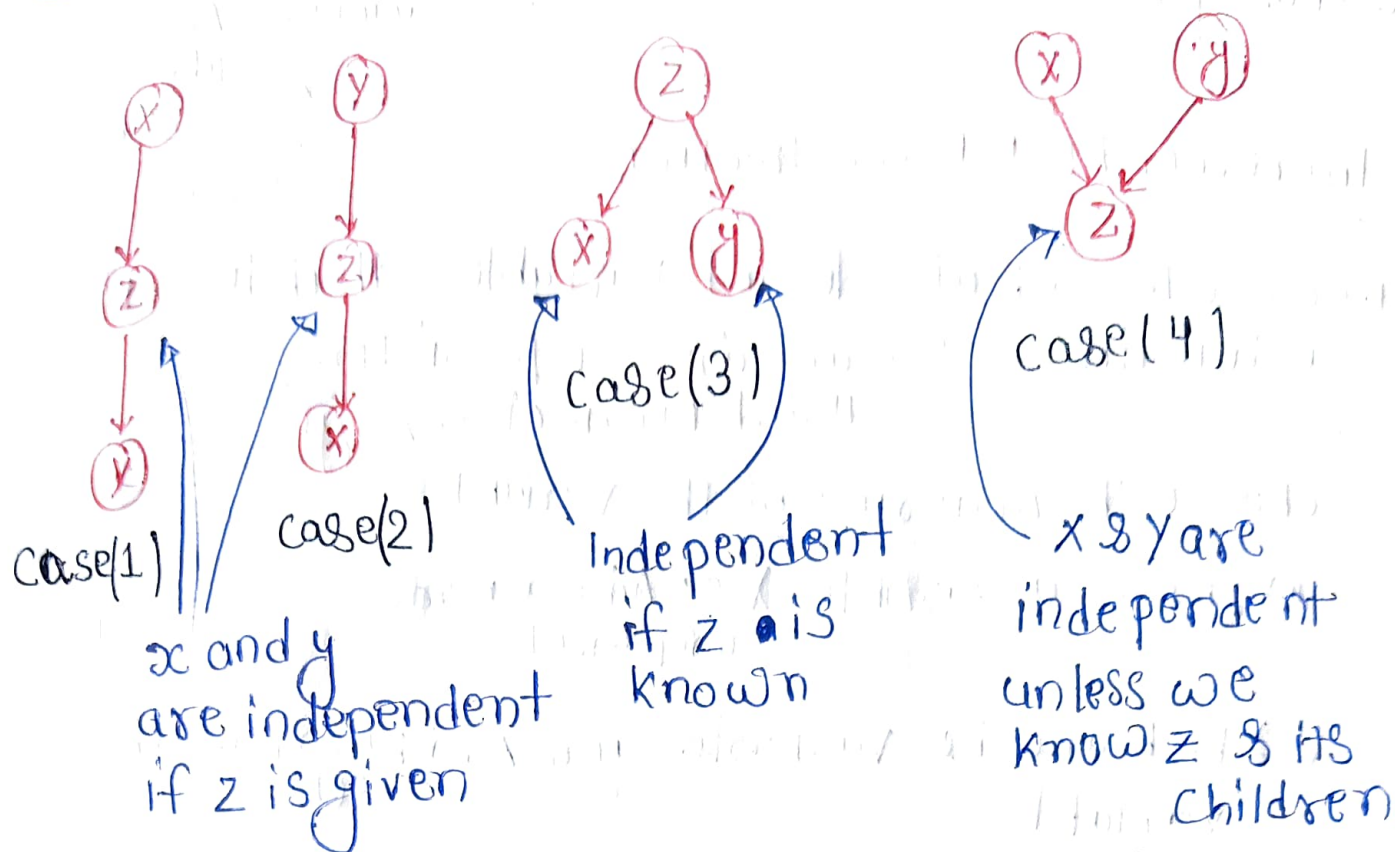 x
z
y
case(1)
y
z
x
case(2)
x and y
are independent
if z is given
z
x
y
case(3)
Independent
if z is
known
x
y
z
case(4)
x & y are
independent
unless we
know z & its
children